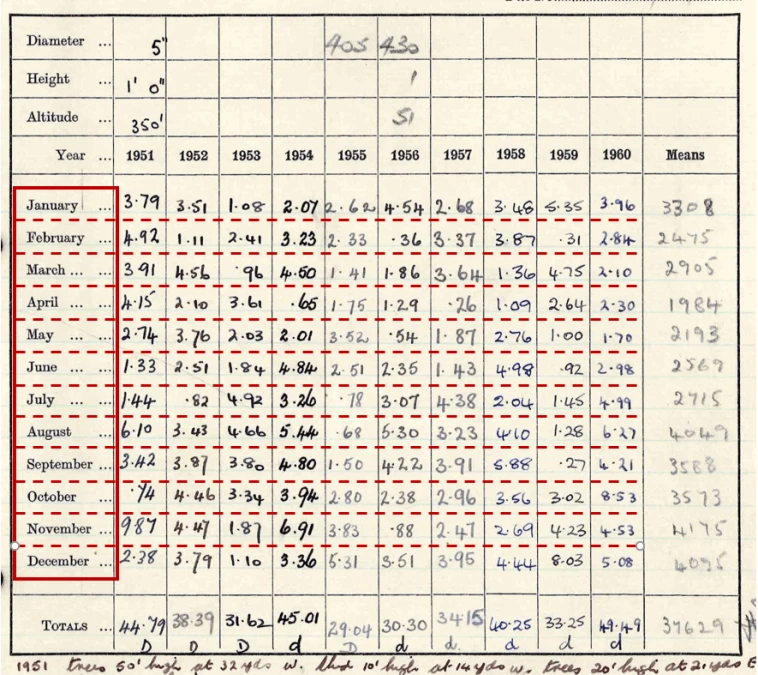 Diameter ... 5" 405 430
Height ... 1' 0" 1
Altitude ... 350' 51
Year ... 1951 1952 1953 1954 1955 1956 1957 1958 1959 1960 Means
January ... 3.79 3.51 1.08 2.07 2.62 4.54 2.68 3.48 5.35 3.96 3308
February ... 4.92 1.11 2.41 3.23 2.33 .36 3.37 3.87 .31 2.84 2475
March ... ... 3.91 4.56 .96 4.50 1.41 1.86 3.64 1.36 4.75 2.10 2905
April ... ... 4.15 2.10 3.61 .65 1.75 1.29 .26 1.09 2.64 2.30 1984
May ... ... 2.74 3.76 2.03 2.01 3.52 .54 1.87 2.76 1.00 1.70 2193
June ... ... 1.33 2.51 1.84 4.84 2.51 2.35 1.43 4.98 .92 2.98 2569
July ... ... 1.44 .82 4.92 3.26 .78 3.07 4.38 2.04 1.45 4.99 2715
August ... 6.10 3.43 4.66 5.44 .68 5.30 3.23 4.10 1.28 6.27 4049
September ... 3.42 3.87 3.80 4.80 1.50 4.22 3.91 5.88 .27 4.21 3588
October ... .74 4.46 3.34 3.94 2.80 2.38 2.96 3.56 3.02 8.53 3573
November ... 9.87 4.47 1.87 6.91 3.83 .88 2.47 2.69 4.23 4.53 4175
December ... 2.38 3.79 1.10 3.36 5.31 3.51 3.95 4.44 8.03 5.08 4095
TOTALS ... 44.79 38.39 31.62 45.01 29.04 30.30 34.15 40.25 33.25 49.49 37629
D D D d D d d. d d d
1951 trees 50' high at 32 yds W. shed 10' high at 14 yds W. trees 20' high at 21 yds E